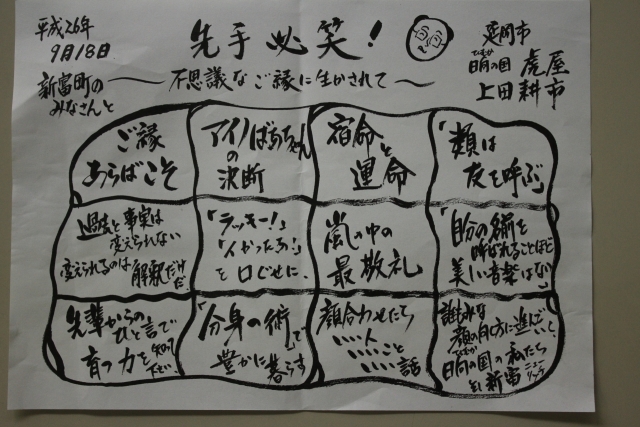 平成26年
9月18日
新富町の
みなさんと
先手必笑!
~不思議なご縁に生かされて~
延岡市
ひむか
日向の国 虎屋
上田耕市
ご縁
あらばこそ
アイノばあちゃん
の
決断
宿命と
運命
「類は
友を呼ぶ」
過去と事実は
変えられない
変えられるのは解釈だけだ
「ラッキー!」
「よかったぁ!」
を口ぐせに、
嵐の中の
最敬礼
「自分の名前を
呼ばれることほど
美しい音楽はない」
先輩からの
ひと言で
育つ力を
「分身の術」で
豊かに暮らす
顔合わせたら
いい人
いいこと
いい話
誰もみな
顔の向く方に進んでいく、
ひむか
日向の国の私たち
新富